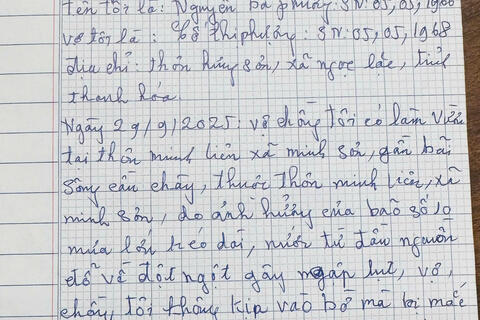 tên tôi là: Nguyễn bá phương: SN: 05, 05, 1966
vợ tôi là: Đỗ thị phượng: SN: 05, 05, 1968
địa chỉ: thôn hưng sơn, xã ngọc lặc, tỉnh
thanh hóa.
Ngày 29/9/2025: vợ chồng tôi có làm vườn
tại thôn minh liên xã minh sơn, gần bãi
sông cầu chày, thuộc thôn minh liên, xã
minh sơn, do ảnh hưởng của bão số 10
mưa lớn kéo dài, nước từ đầu nguồn
đổ về đột ngột gây ngập lụt, vợ,
chồng, tôi không kịp vào bờ mà bị mắc